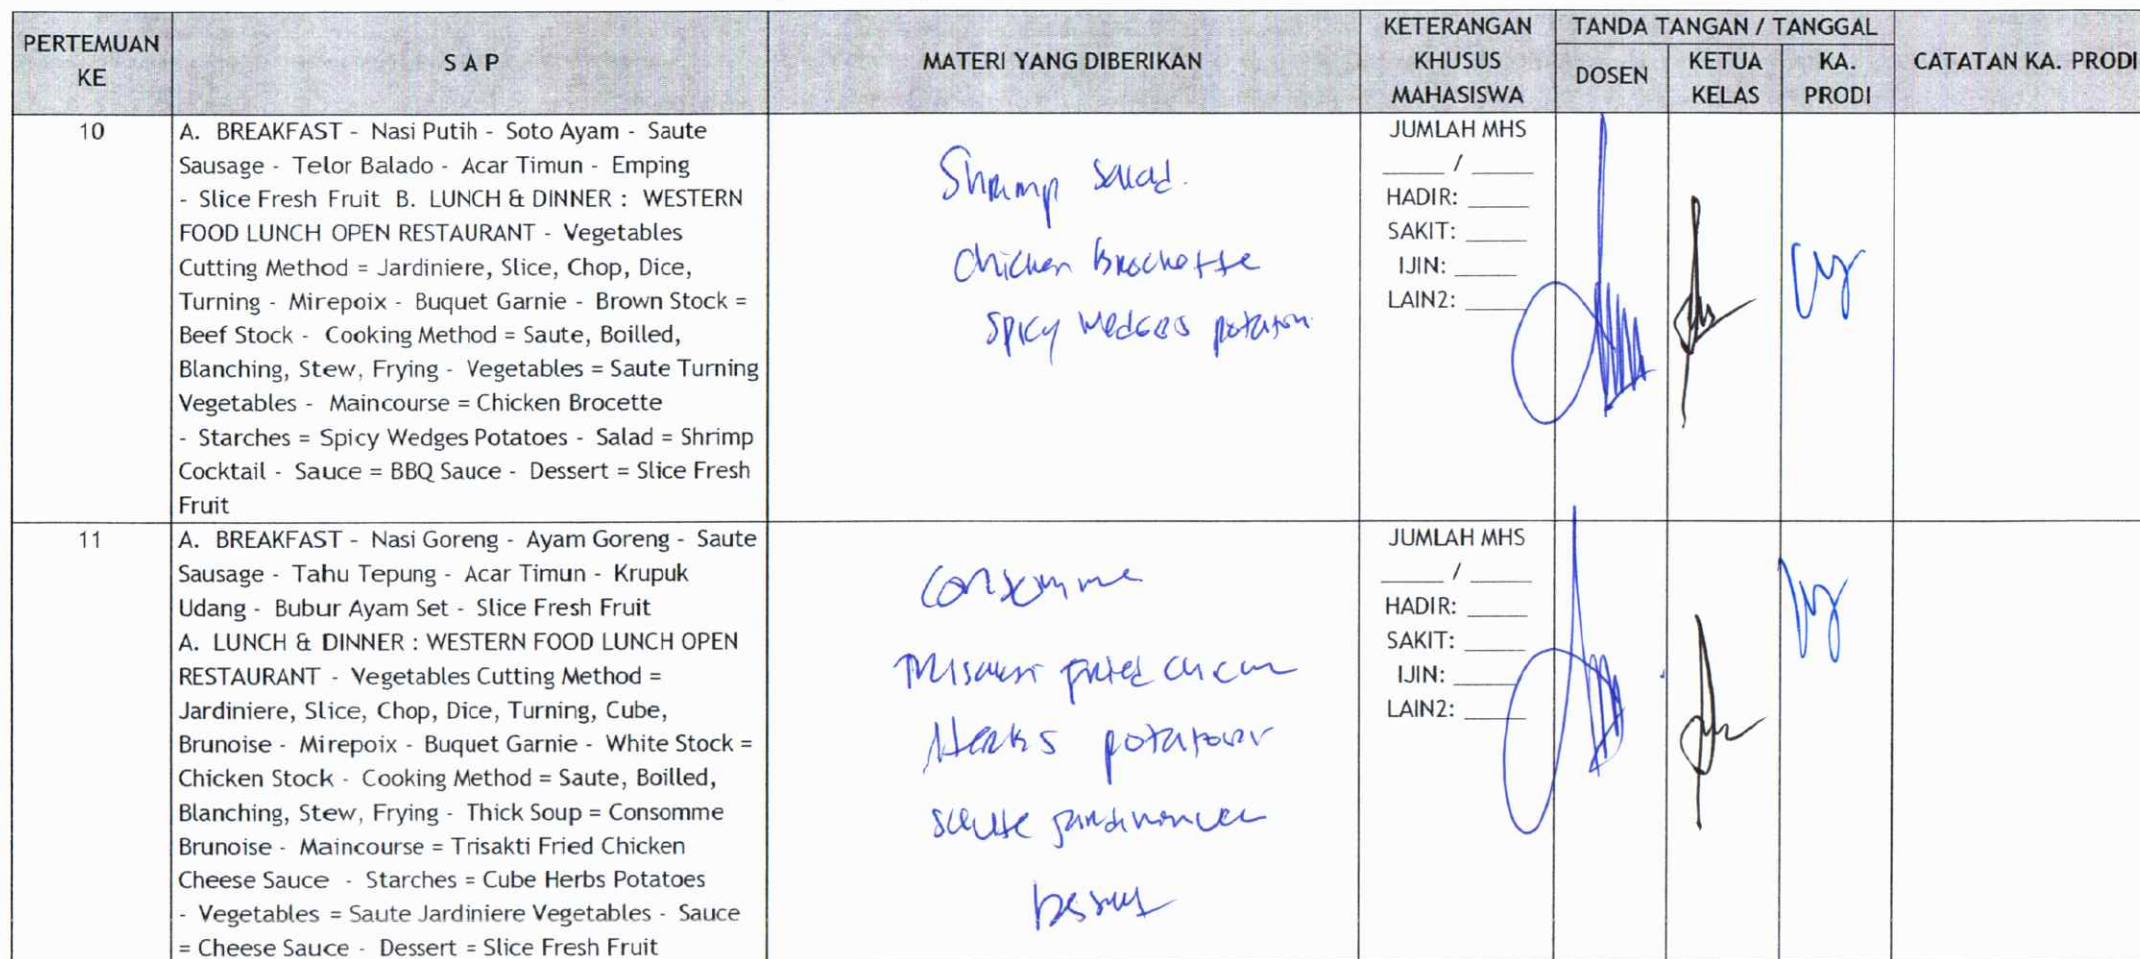 PERTEMUAN KE
S A P
MATERI YANG DIBERIKAN
KETERANGAN KHUSUS MAHASISWA
TANDA TANGAN / TANGGAL
DOSEN
KETUA KELAS
KA. PRODI
CATATAN KA. PRODI
10
A. BREAKFAST - Nasi Putih - Soto Ayam - Saute
Sausage - Telor Balado - Acar Timun - Emping
- Slice Fresh Fruit B. LUNCH & DINNER : WESTERN
FOOD LUNCH OPEN RESTAURANT - Vegetables
Cutting Method = Jardiniere, Slice, Chop, Dice,
Turning - Mirepoix - Buquet Garnie - Brown Stock =
Beef Stock - Cooking Method = Saute, Boilled,
Blanching, Stew, Frying - Vegetables = Saute Turning
Vegetables - Maincourse = Chicken Brocette
- Starches = Spicy Wedges Potatoes - Salad = Shrimp
Cocktail - Sauce = BBQ Sauce - Dessert = Slice Fresh
Fruit
Shrimp Salad.
Chicken Brochette
Spicy wedges
JUMLAH MHS
____ / ____
HADIR: ____
SAKIT: ____
IJIN: ____
LAIN2: ____
11
A. BREAKFAST - Nasi Goreng - Ayam Goreng - Saute
Sausage - Tahu Tepung - Acar Timun - Krupuk
Udang - Bubur Ayam Set - Slice Fresh Fruit
A. LUNCH & DINNER : WESTERN FOOD LUNCH OPEN
RESTAURANT - Vegetables Cutting Method =
Jardiniere, Slice, Chop, Dice, Turning, Cube,
Brunoise - Mirepoix - Buquet Garnie - White Stock =
Chicken Stock - Cooking Method = Saute, Boilled,
Blanching, Stew, Frying - Thick Soup = Consomme
Brunoise - Maincourse = Trisakti Fried Chicken
Cheese Sauce - Starches = Cube Herbs Potatoes
- Vegetables = Saute Jardiniere Vegetables - Sauce
= Cheese Sauce - Dessert = Slice Fresh Fruit
Consomme
fried
Herbs
saute
JUMLAH MHS
____ / ____
HADIR: ____
SAKIT: ____
IJIN: ____
LAIN2: ____